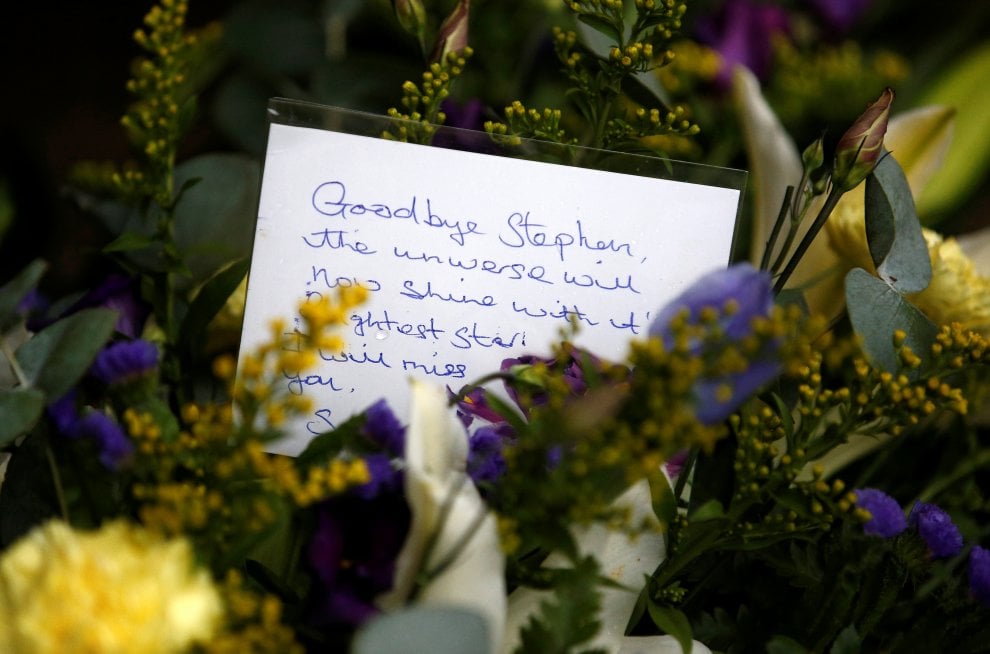 Goodbye Stephen,
the universe will
now shine with it'
ightest star.
I will miss
you,
S